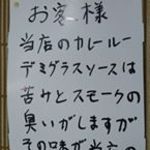 お客様
当店のカレールー
デミグラスソースは
苦みとスモークの
臭いがしますが
その味が当店の